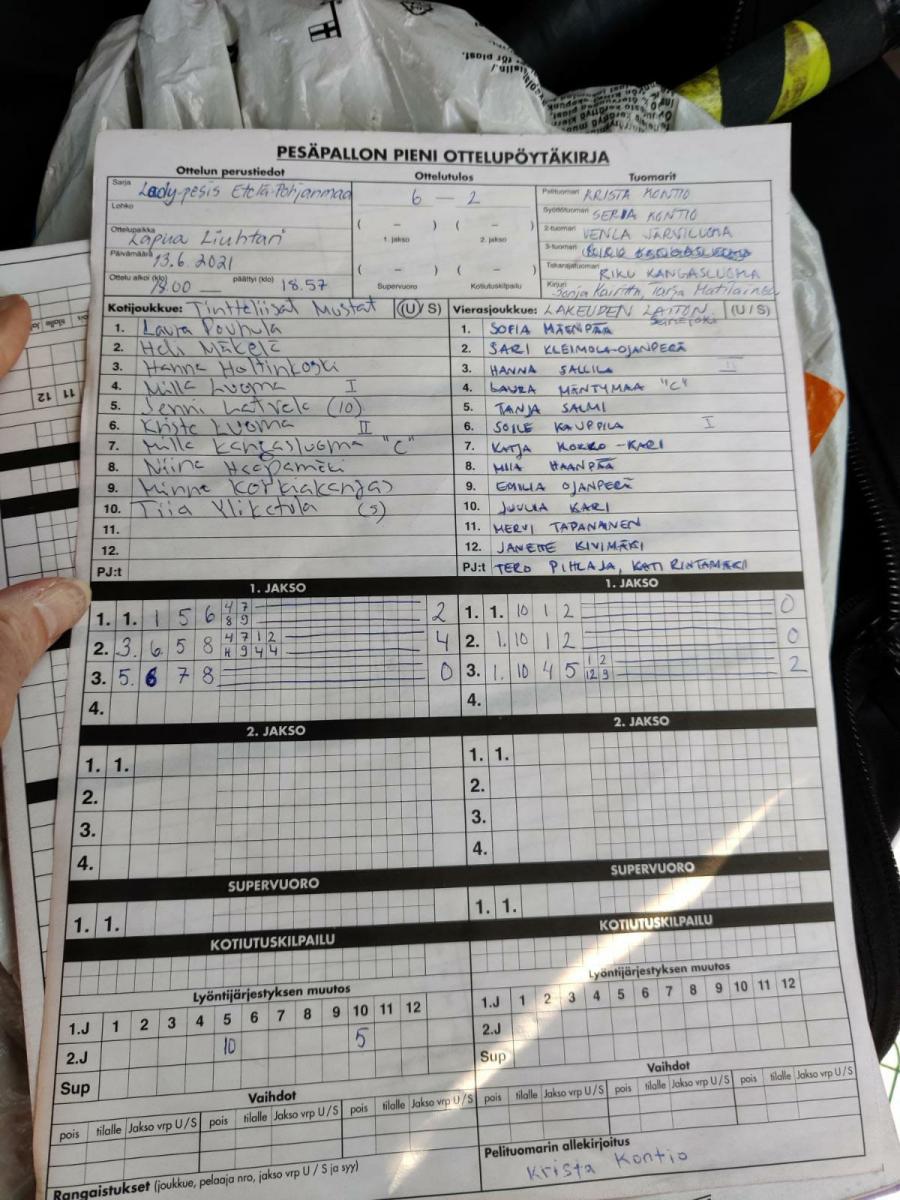 PESÄPALLON PIENI OTTELUPÖYTÄKIRJA
Ottelun perustiedot
Ottelutulos
Tuomarit
Sarja Lady-pesis Etelä-Pohjanmaa
6 - 2
Pelituomari KRISTA KONTIO
Lohko
Syöttötuomari SERJA KONTIO
( - ) ( - )
1. jakso 2. jakso
2-tuomari VENLA JÄRVILUOMA
Ottelupaikka Lapua Liuhtari
3-tuomari
Päivämäärä 13.6.2021
( - ) ( - )
Takarajatuomari RIKU KANGASLUOMA
Ottelu alkoi (klo) 18.00 päättyi (klo) 18.57
Supervuoro Kotiutuskilpailu
Kirjuri Sonja Tarja Matilainen
Kotijoukkue: Tintteliisat Mustat (U/S)
Vierasjoukkue: LAKEUDEN LAITON (U/S)
Seinäjoki
1. Laura Pouhula
2. Heli Mäkelä
3. Hanna Holtinkoski
4. Milla Luoma I
5. Senni Latvala (10)
6. Krista Luoma II
7. Milla Kangasluoma "C"
8. Niina Haapamäki
9. Minna Korkiakangas
10. Tiia Ylikatula (5)
11.
12.
PJ:t
1. SOFIA MÄENPÄÄ
2. SARI KLEIMOLA-OJANPERÄ
3. HANNA SALLILA II
4. LAURA MÄNTYMAA "C"
5. TANJA SALMI
6. SOILE KAUPPILA I
7. KATJA KOKKO-KARI
8. MIIA HAANPÄÄ
9. EMILIA OJANPERÄ
10. JUULIA KARI
11. MERVI TAPANAINEN
12. JANETTE KIVIMÄKI
PJ:t TERO PIHLAJA, KATI RINTAMÄKI
1. JAKSO
1. 1. 1 5 6 4 7 8 9 2
2. 3. 6 5 8 4 7 1 2 9 4 4 4
3. 5. 6 7 8 0
4.
1. JAKSO
1. 1. 10 1 2 0
2. 1. 10 1 2 0
3. 1. 10 4 5 1 2 12 3 2
4.
2. JAKSO
1. 1.
2.
3.
4.
2. JAKSO
1. 1.
2.
3.
4.
SUPERVUORO
1. 1.
SUPERVUORO
1. 1.
KOTIUTUSKILPAILU
KOTIUTUSKILPAILU
Lyöntijärjestyksen muutos
1.J 1 2 3 4 5 6 7 8 9 10 11 12
2.J 10 5
Sup
Lyöntijärjestyksen muutos
1.J 1 2 3 4 5 6 7 8 9 10 11 12
2.J
Sup
Vaihdot
pois tilalle Jakso vrp U / S pois tilalle Jakso vrp U / S pois tilalle Jakso vrp U / S
Vaihdot
pois tilalle Jakso vrp U / S pois tilalle Jakso vrp U / S pois tilalle Jakso vrp U / S
Rangaistukset (joukkue, pelaaja nro, jakso vrp U / S ja syy)
Pelituomarin allekirjoitus
Krista Kontio